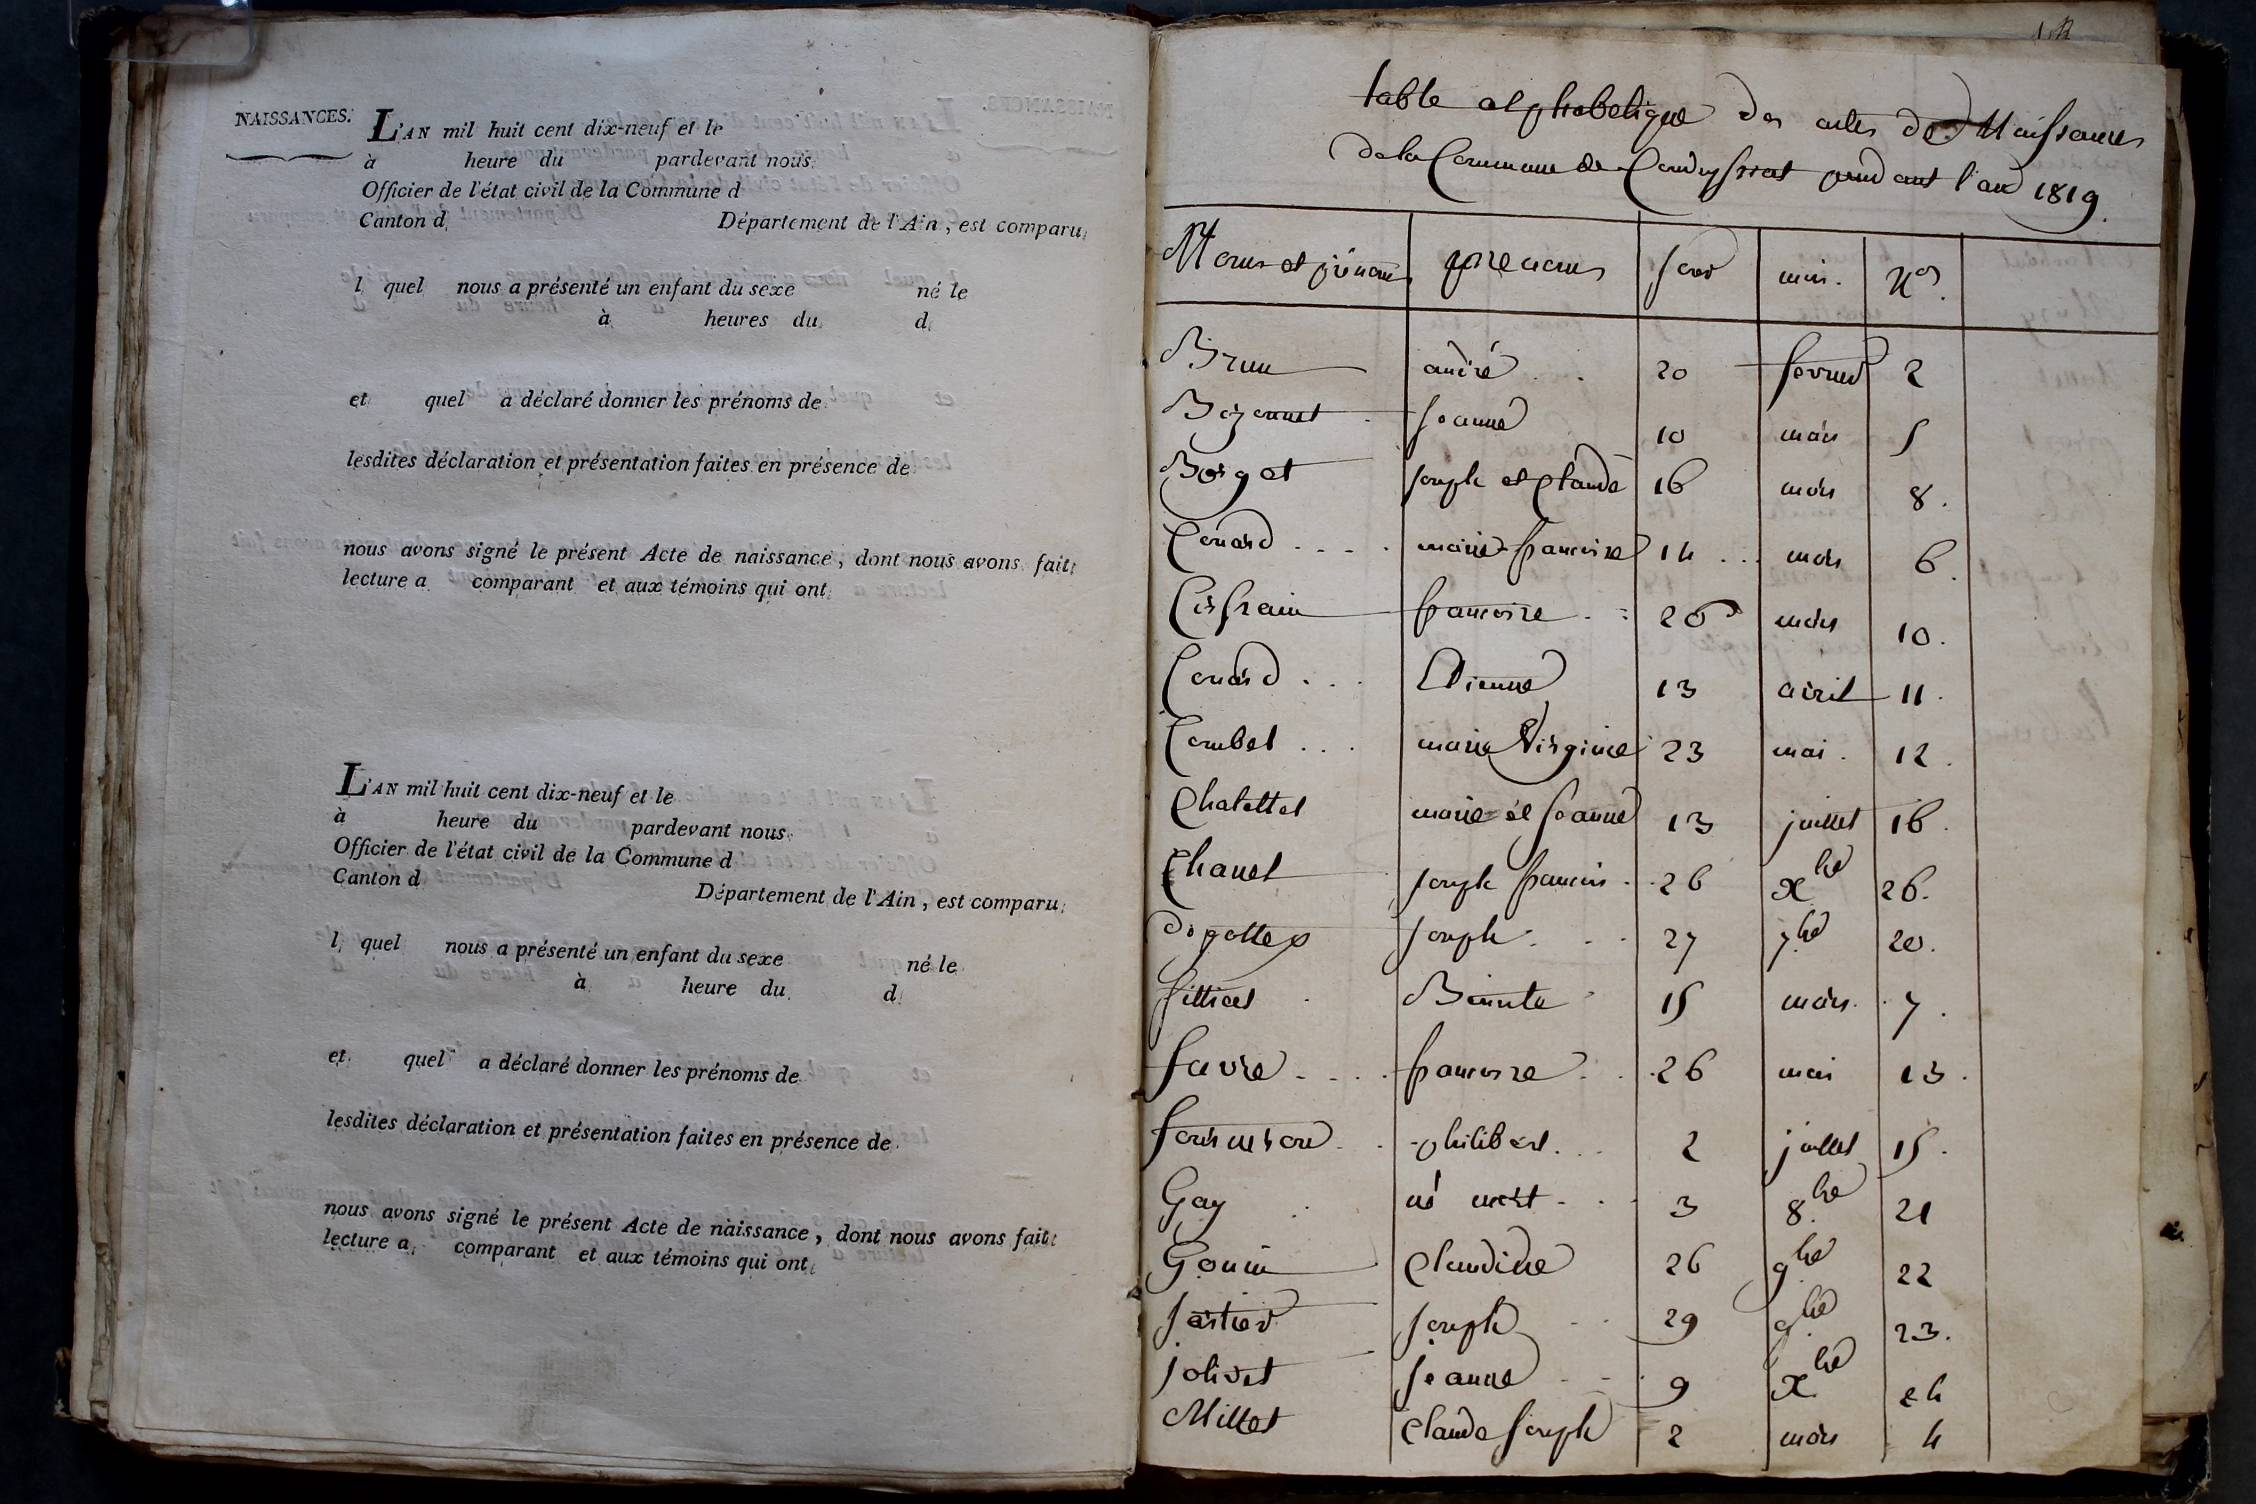 NAISSANCES.
L'AN mil huit cent dix-neuf et le
à heure du pardevant nous
Officier de l'état civil de la Commune d
Canton d Département de l'Ain, est comparu
l quel nous a présenté un enfant du sexe né le
à heures du d
et quel a déclaré donner les prénoms de
lesdites déclaration et présentation faites en présence de
nous avons signé le présent Acte de naissance, dont nous avons fait
lecture a comparant et aux témoins qui ont
L'AN mil huit cent dix-neuf et le
à heure du pardevant nous
Officier de l'état civil de la Commune d
Canton d Département de l'Ain, est comparu
l quel nous a présenté un enfant du sexe né le
à heure du d
et quel a déclaré donner les prénoms de
lesdites déclaration et présentation faites en présence de
nous avons signé le présent Acte de naissance, dont nous avons fait
lecture a comparant et aux témoins qui ont
table alphabetique des actes de Naissances
de la Commune de Condeyssiat pendant l'an 1819.
Noms et prénoms prenoms jour mois. Nos.
Brun andré 20 fevrier 2
Bozonnet jeanne 10 mars 5
Borget joseph et Claude 16 mars 8.
Conard marie francoise 14 mars 6.
francoise mars 10.
Conard Etienne 13 avril 11.
Combet marie Virginie 23 mai. 12.
Chatettet marie et jeanne 13 juillet 16.
Chanel joseph francois 26 xbre 26.
joseph 27 7bre 20.
fittiat Benoite 15 mars. 7.
favre francoise 26 mai 13.
philibert. 2 juillet 15.
Gay né mort 3 8bre 21
Gonin Claudine 26 9bre 22
jostier joseph 29 9bre 23.
jolivet jeanne 9 xbre 24
Millet Claude joseph 2 mars 4